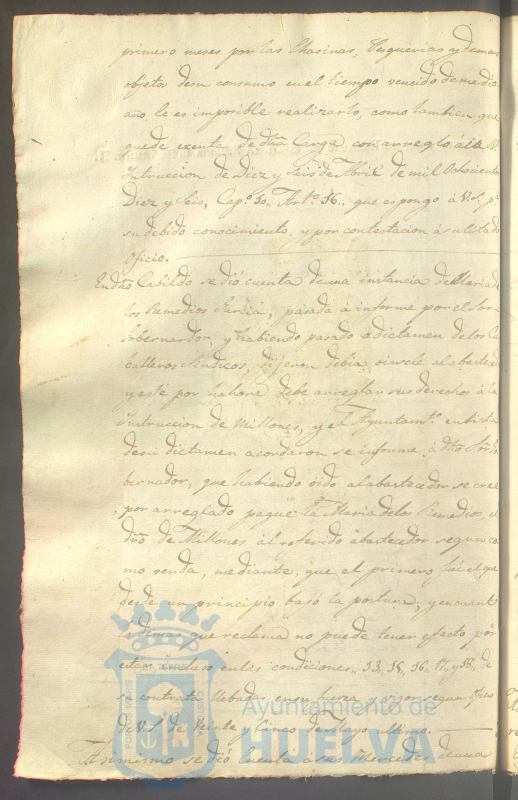 primero meses por las Chasinas, Pesquerias y demas
objetos de su consumo en el tiempo vencido de medio
año, le es imposible realizarlo, como tambien que
quede exenta de dha Carga con arreglo á la
Intruccion de Diez y seis de Abril de mil Ochocientos
Diez y seis, Capº 30., Artº 36., que espongo á V.S. pª
su debido conocimiento, y por contestacion á su citado
oficio.
En dho Cabildo se dió cuenta de una instancia de Maria de
los Remedios Garcia, pasada á informe por el Sor
Gobernardor, y habiendo pasado a dictamen de los Ca
balleros Sindicos, dijeron debia oirsele al abastecedor
y este por hahora debe arreglar sus derechos á la
Instruccion de Millones, y el Ayuntamtº en vista
de su dictamen acordaron se informe á dho Sor Go
bernador, que habiendo oido al abastecedor se cree
por arreglado pague la Maria de los Remedios, el
dro de Millones al referido abastecedor segun co
mo venda, mediante, que el primero fué el que
desde un principio bajó la postura, y en cuanto
lo demas que reclama no puede tener efecto por
estar incluso en las condiciones 13, 15, 16, 17, y 18, de
su contrata llebadas en su fuerza y vigor segun oficio
de V.S. de Veinte y Cinco de Mayo ultimo.
Asimismo se dió Cuenta a sus Mercedes de una
Ayuntamiento de
HUELVA
PORTUS MARIS